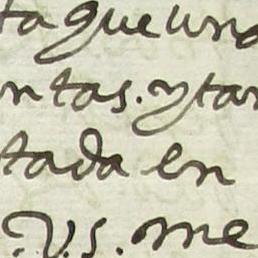 ta que una
ntas. y tan
tada en
. V. S. me